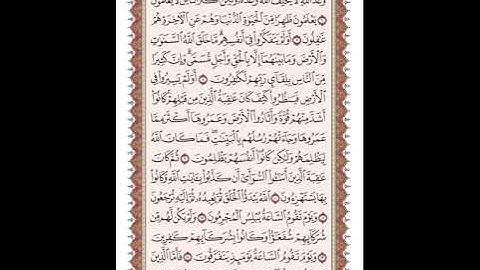 وَعْدَ ٱللَّهِ لَا يُخْلِفُ ٱللَّهُ وَعْدَهُۥ وَلَٰكِنَّ أَكْثَرَ ٱلنَّاسِ لَا يَعْلَمُونَ
يَعْلَمُونَ ظَٰهِرًا مِّنَ ٱلْحَيَوٰةِ ٱلدُّنْيَا وَهُمْ عَنِ ٱلْءَاخِرَةِ هُمْ
غَٰفِلُونَ ۝ أَوَلَمْ يَتَفَكَّرُوا۟ فِىٓ أَنفُسِهِم مَّا خَلَقَ ٱللَّهُ ٱلسَّمَٰوَٰتِ
وَٱلْأَرْضَ وَمَا بَيْنَهُمَآ إِلَّا بِٱلْحَقِّ وَأَجَلٍ مُّسَمًّى وَإِنَّ كَثِيرًا
مِّنَ ٱلنَّاسِ بِلِقَآئِ رَبِّهِمْ لَكَٰفِرُونَ ۝ أَوَلَمْ يَسِيرُوا۟ فِى
ٱلْأَرْضِ فَيَنظُرُوا۟ كَيْفَ كَانَ عَٰقِبَةُ ٱلَّذِينَ مِن قَبْلِهِمْ كَانُوٓا۟
أَشَدَّ مِنْهُمْ قُوَّةً وَأَثَارُوا۟ ٱلْأَرْضَ وَعَمَرُوهَآ أَكْثَرَ مِمَّا
عَمَرُوهَا وَجَآءَتْهُمْ رُسُلُهُم بِٱلْبَيِّنَٰتِ فَمَا كَانَ ٱللَّهُ
لِيَظْلِمَهُمْ وَلَٰكِن كَانُوٓا۟ أَنفُسَهُمْ يَظْلِمُونَ ۝ ثُمَّ كَانَ
عَٰقِبَةَ ٱلَّذِينَ أَسَٰٓـُٔوا۟ ٱلسُّوٓأَىٰٓ أَن كَذَّبُوا۟ بِـَٔايَٰتِ ٱللَّهِ وَكَانُوا۟
بِهَا يَسْتَهْزِءُونَ ۝ ٱللَّهُ يَبْدَؤُا۟ ٱلْخَلْقَ ثُمَّ يُعِيدُهُۥ ثُمَّ إِلَيْهِ تُرْجَعُونَ
۝ وَيَوْمَ تَقُومُ ٱلسَّاعَةُ يُبْلِسُ ٱلْمُجْرِمُونَ ۝ وَلَمْ يَكُن لَّهُم مِّن
شُرَكَآئِهِمْ شُفَعَٰٓؤُا۟ وَكَانُوا۟ بِشُرَكَآئِهِمْ كَٰفِرِينَ
۝ وَيَوْمَ تَقُومُ ٱلسَّاعَةُ يَوْمَئِذٍ يَتَفَرَّقُونَ ۝ فَأَمَّا ٱلَّذِينَ